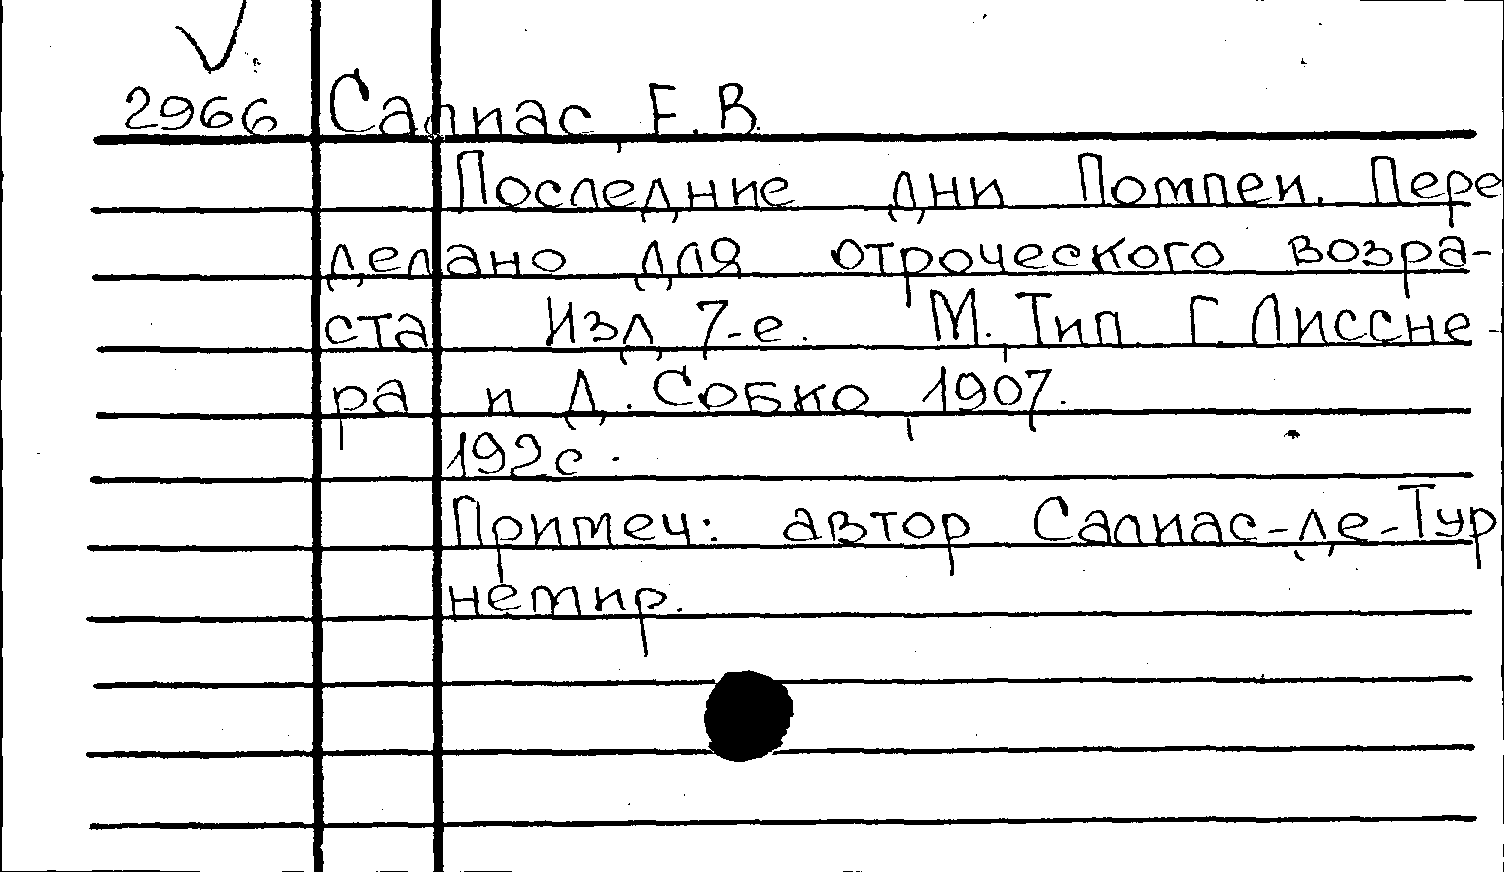 2966 Салиас, Е.В.
Последние дни Помпеи. Пере
делано для отроческого возра-
ста Изд. 7-е. М., Тип. Г. Лиссне-
ра и Д. Собко, 1907.
192с.
Примеч: автор Салиас-де-Тур
немир.